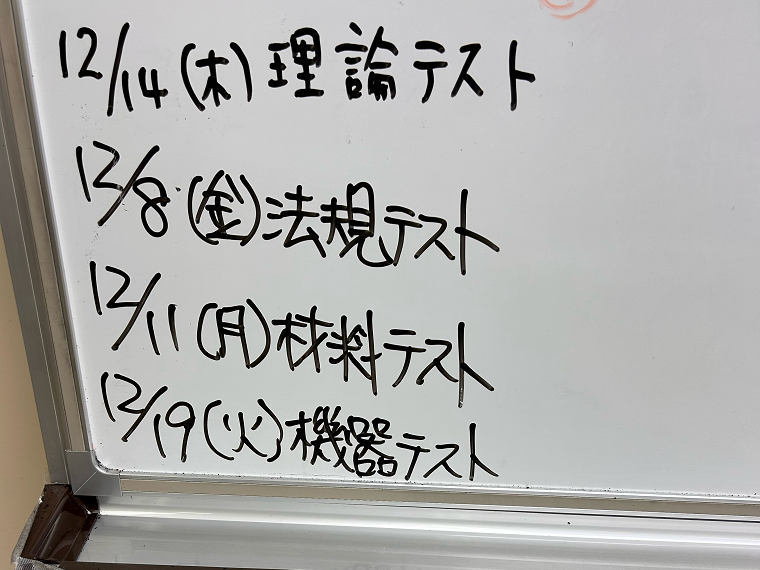 12/14(木)理論テスト
12/8(金)法規テスト
12/11(月)材料テスト
12/19(火)機器テスト